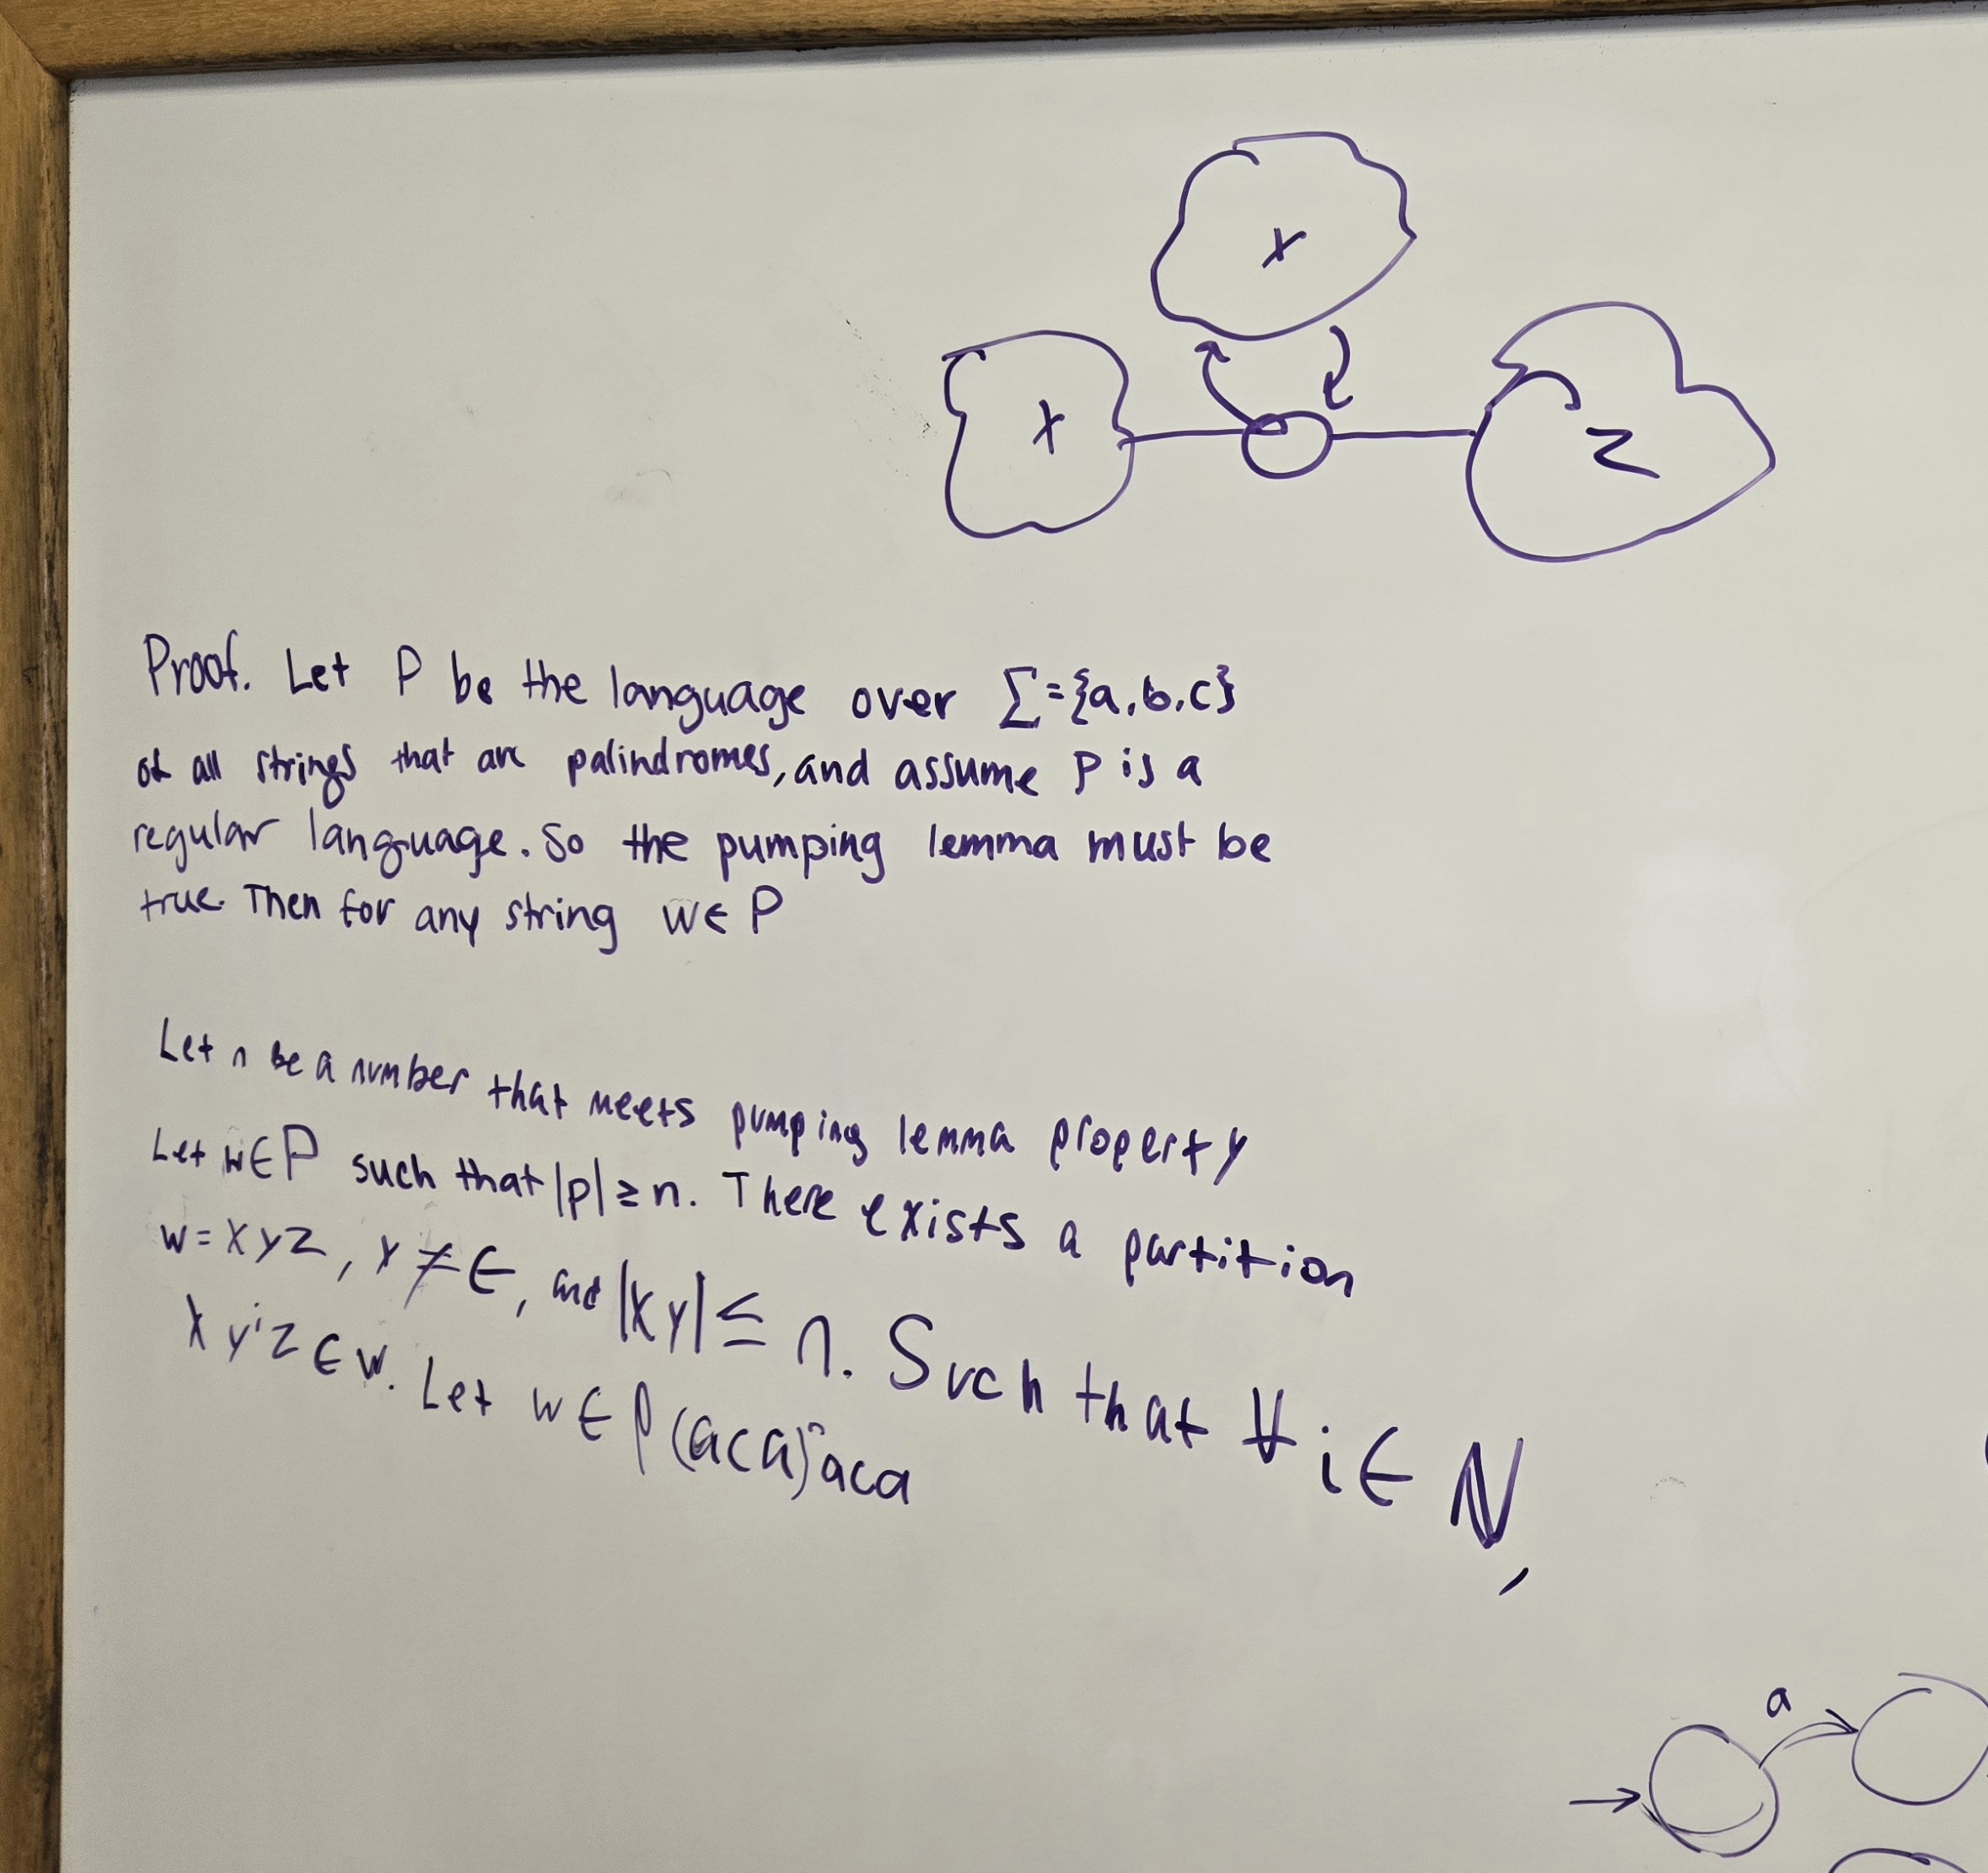 x
x
z
Proof. Let P be the language over Σ={a,b,c}
of all strings that are palindromes, and assume P is a
regular language. So the pumping lemma must be
true. Then for any string w∈P
Let n be a number that meets pumping lemma property
Let w∈P such that |p|≥n. There exists a partition
w=xyz, y≠ϵ, and |xy|≤n. Such that ∀i∈ℕ,
xyⁱz∈w. Let w∈P (aca)ⁿaca
a